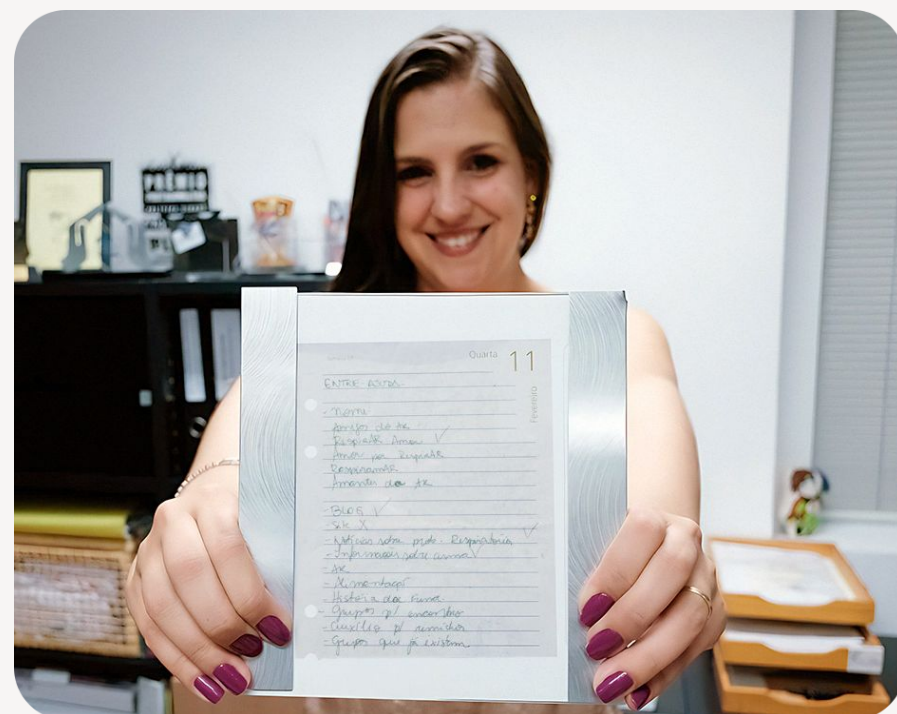 PRÊMIO
Quarta 11
Fevereiro
ENTRE
- Nome
Amigos do AR
RespirAR Amor ✓
Amor por RespirAR
RespiramAR
Amantes do AR
- BLOG ✓
- Site X
- Notícias sobre prob. Respiratórios ✓
- Informações sobre asma ✓
- AR
- Alimentação
- História da
- Grupos p/ encontros
- Auxílio p/ remédios
- Grupos que já existem